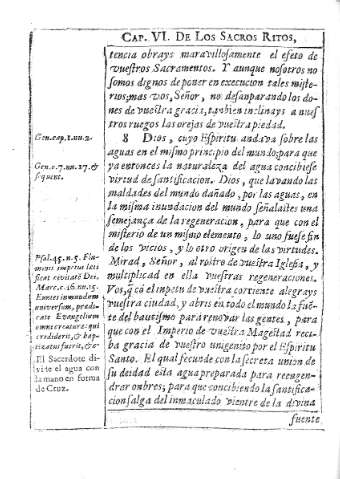 CAP. VI. DE LOS SACROS RITOS,
tencia obrays maravillosamente el efeto de
vuestros Sacramentos. Y aunque nosotros no
somos dignos de poner en execucion tales miste-
rios; mas vos, Señor, no desanparando los do-
nes de vuestra gracia, tanbien inclinays a nues-
tros ruegos las orejas de vuestra piedad.
8 DIOS, cuyo Espiritu andava sobre las
aguas en el mismo principio del mundo: para que
ya entonces la naturaleza del agua concibiese
virtud de santificacion. Dios, que lavando las
maldades del mundo dañado, por las aguas, en
la misma inundacion del mundo señalastes una
semejança de la regeneracion, para que con el
misterio de un mismo elemento, lo uno fuese fin
de los vicios, y lo otro origen de las virtudes.
Mirad, Señor, al rostro de vuestra Iglesia, y
multiplicad en ella vuestras regeneraciones.
Vos, q̃ cō el inpetu de vuestra corriente alegrays
vuestra ciudad, y abris en todo el mundo la fuē-
te del bautismo para renovar las gentes, para
que con el Imperio de vuestra Magestad reci-
ba gracia de vuestro unigenito por el Espiritu
Santo. El qual fecunde con la secreta union de
su deidad esta agua preparada para reengen-
drar onbres; para que concibiendo la santifica-
cion salga del inmaculado vientre de la divina
fuente
Gen. cap. 1. nu. 2.
Gen. c. 7. nu. 27. &
sequent.
Psal. 45. n. 5. Flu-
minis impetus lęti
ficat civitatē Dei.
Marc. c. 16. nu. 15.
Euntes in mundum
universum, predi-
cate Evangelium
omni creature: qui
crediderit, & bap-
tizatus fuerit, &c.
El Sacerdote di-
vite el agua con
la mano en forma
de Cruz.